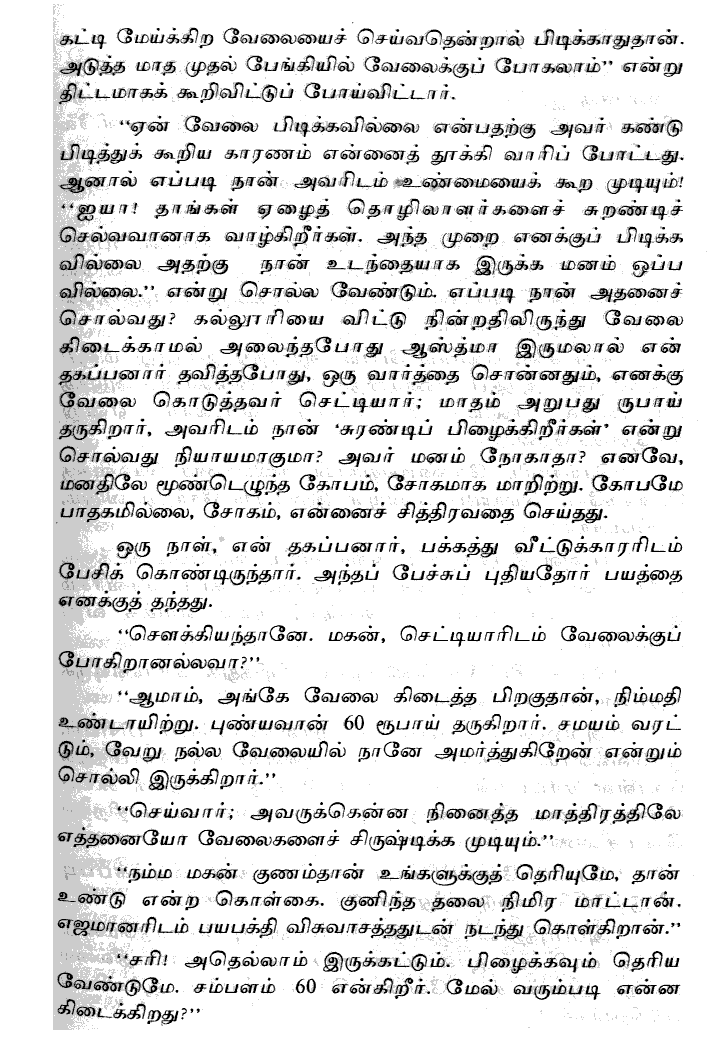 கட்டி மேய்க்கிற வேலையைச் செய்வதென்றால் பிடிக்காதுதான்.
அடுத்த மாத முதல் பேங்கியில் வேலைக்குப் போகலாம்” என்று
திட்டமாகக் கூறிவிட்டுப் போய்விட்டார்.
“ஏன் வேலை பிடிக்கவில்லை என்பதற்கு அவர் கண்டு
பிடித்துக் கூறிய காரணம் என்னைத் தூக்கி வாரிப் போட்டது.
ஆனால் எப்படி நான் அவரிடம் உண்மையைக் கூற முடியும்!
“ஐயா! தாங்கள் ஏழைத் தொழிலாளர்களைச் சுறண்டிச்
செல்வவானாக வாழ்கிறீர்கள். அந்த முறை எனக்குப் பிடிக்க
வில்லை அதற்கு நான் உடந்தையாக இருக்க மனம் ஒப்ப
வில்லை.” என்று சொல்ல வேண்டும். எப்படி நான் அதனைச்
சொல்வது? கல்லூரியை விட்டு நின்றதிலிருந்து வேலை
கிடைக்காமல் அலைந்தபோது ஆஸ்த்மா இருமலால் என்
தகப்பனார் தவித்தபோது, ஒரு வார்த்தை சொன்னதும், எனக்கு
வேலை கொடுத்தவர் செட்டியார்; மாதம் அறுபது ருபாய்
தருகிறார், அவரிடம் நான் ‘சுரண்டிப் பிழைக்கிறீர்கள்’ என்று
சொல்வது நியாயமாகுமா? அவர் மனம் நோகாதா? எனவே,
மனதிலே மூண்டெழுந்த கோபம், சோகமாக மாறிற்று. கோபமே
பாதகமில்லை, சோகம், என்னைச் சித்திரவதை செய்தது.
ஒரு நாள், என் தகப்பனார், பக்கத்து வீட்டுக்காரரிடம்
பேசிக் கொண்டிருந்தார். அந்தப் பேச்சுப் புதியதோர் பயத்தை
எனக்குத் தந்தது.
“சௌக்கியந்தானே. மகன், செட்டியாரிடம் வேலைக்குப்
போகிறானல்லவா?”
“ஆமாம், அங்கே வேலை கிடைத்த பிறகுதான், நிம்மதி
உண்டாயிற்று. புண்யவான் 60 ரூபாய் தருகிறார். சமயம் வரட்
டும், வேறு நல்ல வேலையில் நானே அமர்த்துகிறேன் என்றும்
சொல்லி இருக்கிறார்.”
“செய்வார்; அவருக்கென்ன நினைத்த மாத்திரத்திலே
எத்தனையோ வேலைகளைச் சிருஷ்டிக்க முடியும்.”
“நம்ம மகன் குணம்தான் உங்களுக்குத் தெரியுமே, தான்
உண்டு என்ற கொள்கை. குனிந்த தலை நிமிர மாட்டான்.
எஜமானரிடம் பயபக்தி விசுவாசத்ததுடன் நடந்து கொள்கிறான்.”
“சரி! அதெல்லாம் இருக்கட்டும். பிழைக்கவும் தெரிய
வேண்டுமே. சம்பளம் 60 என்கிறீர். மேல் வரும்படி என்ன
கிடைக்கிறது?”